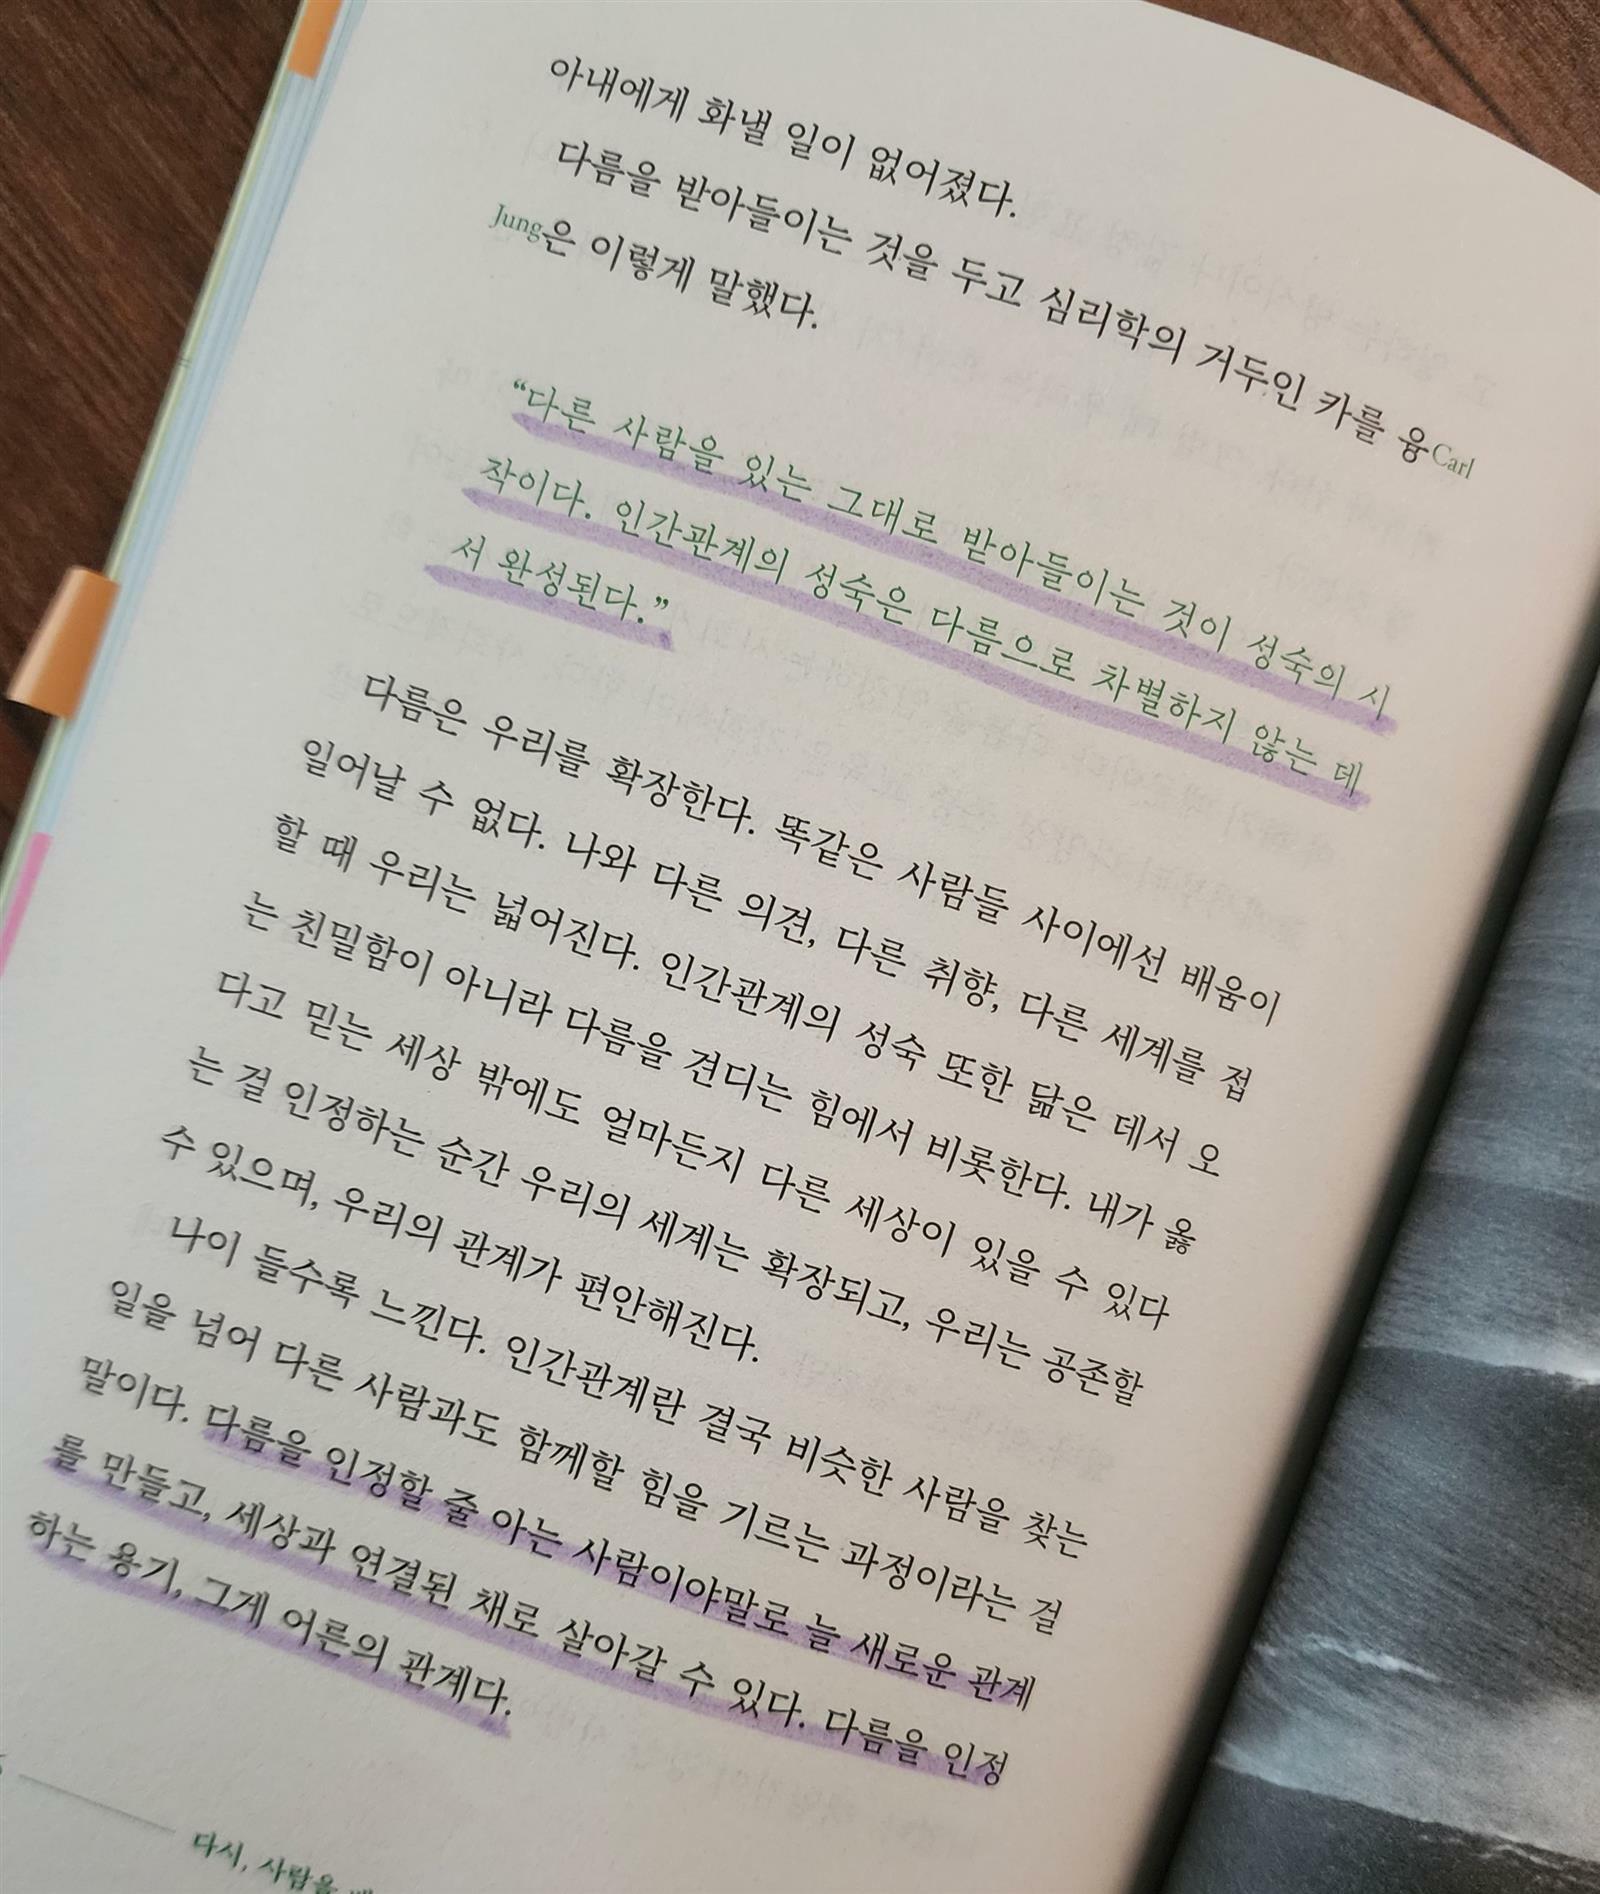 아내에게 화낼 일이 없어졌다.
다름을 받아들이는 것을 두고 심리학의 거두인 카를 융Carl
Jung은 이렇게 말했다.
“다른 사람을 있는 그대로 받아들이는 것이 성숙의 시
작이다. 인간관계의 성숙은 다름으로 차별하지 않는 데
서 완성된다.”
다름은 우리를 확장한다. 똑같은 사람들 사이에선 배움이
일어날 수 없다. 나와 다른 의견, 다른 취향, 다른 세계를 접
할 때 우리는 넓어진다. 인간관계의 성숙 또한 닮은 데서 오
는 친밀함이 아니라 다름을 견디는 힘에서 비롯한다. 내가 옳
다고 믿는 세상 밖에도 얼마든지 다른 세상이 있을 수 있다
는 걸 인정하는 순간 우리의 세계는 확장되고, 우리는 공존할
수 있으며, 우리의 관계가 편안해진다.
나이 들수록 느낀다. 인간관계란 결국 비슷한 사람을 찾는
일을 넘어 다른 사람과도 함께할 힘을 기르는 과정이라는 걸
말이다. 다름을 인정할 줄 아는 사람이야말로 늘 새로운 관계
를 만들고, 세상과 연결된 채로 살아갈 수 있다. 다름을 인정
하는 용기, 그게 어른의 관계다.
다시, 사람을